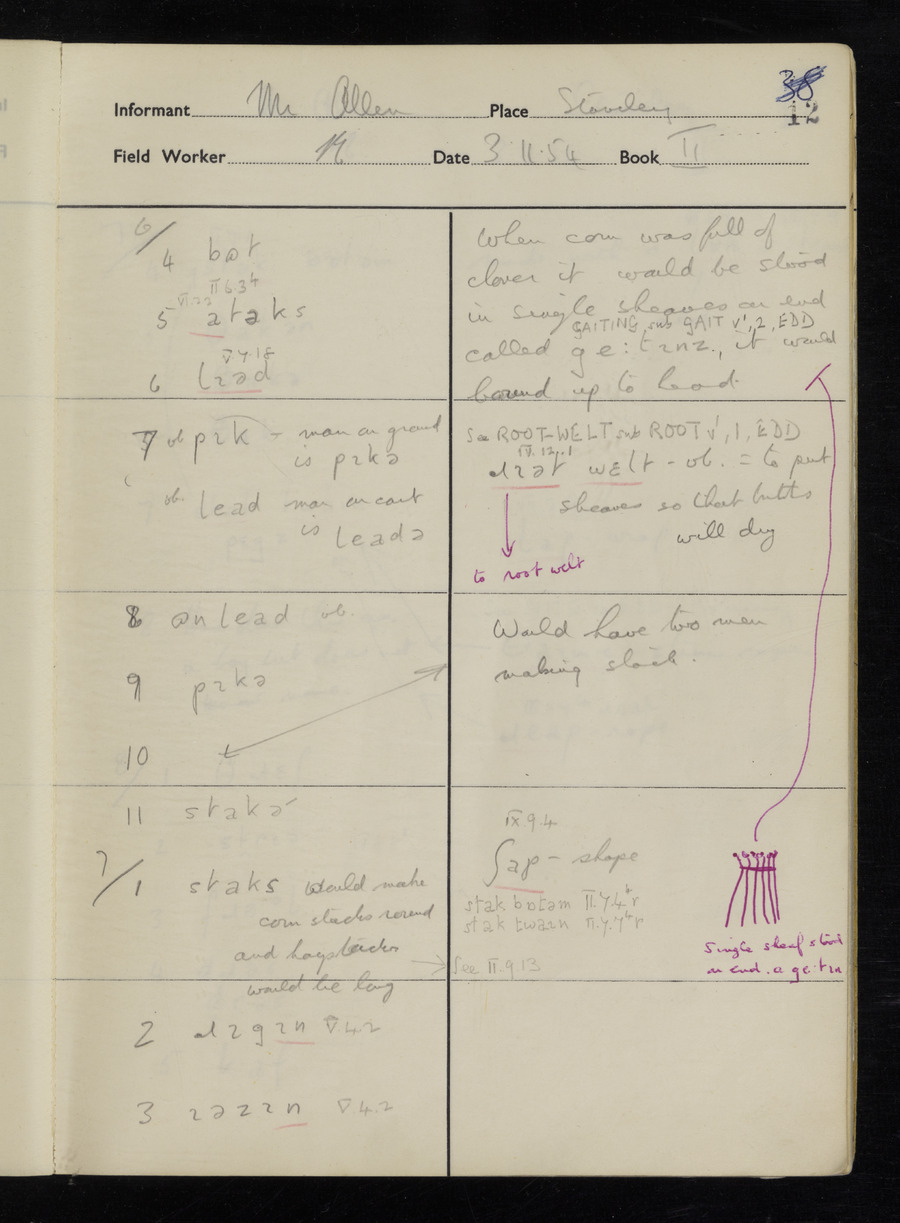 38
12
Informant Mr Allen Place Staveley
Field Worker Date 3.11.54 Book II
6/
4 bɒt
II.6.3
5 ətaks
V.7.18
6 lɪəd
7 vb pɪk - man on ground
is pɪkə
vb. lead man on cart
is leadə
8 ɒnlead vb.
9 pɪkə
10
11 stakə
7/1 staks Would make
corn stacks round
and haystacks
would be long
2 ɹɪgɪn V.4.2
3 ɪəzɪn V.4.2
When corn was full of
clover it would be stood
in single sheaves on end
GAITING, sub GAIT v¹, 2, EDD
called ge:tɪnz., it would
bound up to lead.
See ROOT-WELT, sub ROOT v¹, 1, EDD
IV.12.1
ɹɪət welt - vb. = to put
sheaves so that butts
will dry
to root welt
Would have two men
making stack.
IX.9.4
ʃap - shape
stak bɒtəm II.7.4 r
stak twaɪn II.7.7 r
See II.9.13
Single sheaf stood
on end. a ge·tɪn